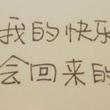 我的快乐
会回来的